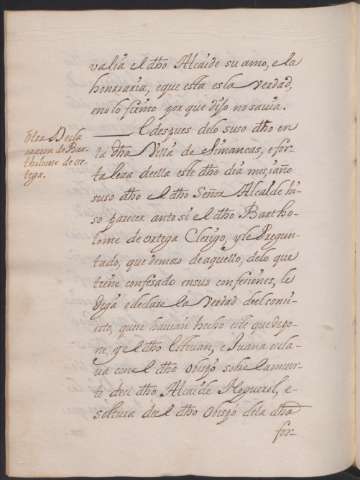 valia el dho Alcaide su amo, e la
honrraria, e que esta es la verdad,
eno lo firmo por que dijo no sauia.
Otra Decla
racion de Bar
tholome de or
tega.
E despues delo suso dho en
la dha Villa de Simancas, e for
taleza della este dho dia mes, e año
suso dho el dho Señor Alcalde hi
ço parecer ante si el dho Bartho
lome de ortega Clerigo, y le Pregun
tado, que demas de aquello, delo que
tiene confesado en sus confesiones,
diga e declare la Verdad de el
que hauian hecho este que depo
ne, y el dho Esteuan, e Juana
el dho obispo sobre la muer
te del dho Alcaide Noguerol, e
soltura de el dho obispo dela dha
for-